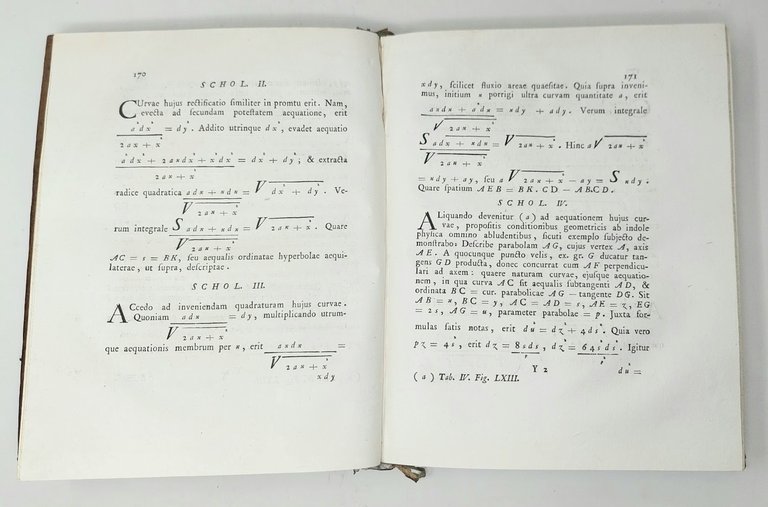 170
SCHOL. II.
CUrvae hujus rectificatio similiter in promtu erit. Nam,
evecta ad secundam potestatem aequatione, erit
a²dx² / 2ax + x² = dy². Addito utrinque dx², evadet aequatio
a²dx² + 2axdx² + x²dx² / 2ax + x² = dx² + dy²; & extracta
radice quadratica adx + xdx / √2ax + x² = √dx² + dy². Ve-
rum integrale S adx + xdx / √2ax + x² = √2ax + x². Quare
AC = s = BK, seu aequalis ordinatae hyperbolae aequi-
laterae, ut supra, descriptae.
SCHOL. III.
ACcedo ad inveniendam quadraturam hujus curvae.
Quoniam adx / √2ax + x² = dy, multiplicando utrum-
que aequationis membrum per x, erit axdx / √2ax + x² =
xdy
171
xdy, scilicet fluxio areae quaesitae. Quia supra inveni-
mus, initium x porrigi ultra curvam quantitate a, erit
axdx + a²dx / √2ax + x² = xdy + ady. Verum integrale
S adx + xdx / √2ax + x² = √2ax + x². Hinc a√2ax + x²
= xdy + ay, seu a√2ax + x² − ay = S xdy.
Quare spatium AEB = BK. CD − AB.CD.
SCHOL. IV.
ALiquando devenitur (a) ad aequationem hujus cur-
vae, propositis conditionibus geometricis ab indole
physica omnino abludentibus, sicuti exemplo subjecto de-
monstrabo: Describe parabolam AG, cujus vertex A, axis
AE. A quocunque puncto velis, ex. gr. G ducatur tan-
gens GD producta, donec concurrat cum AF perpendicu-
lari ad axem: quaere naturam curvae, ejusque aequatio-
nem, in qua curva AC sit aequalis subtangenti AD, &
ordinata BC = cur. parabolicae AG − tangente DG. Sit
AB = x, BC = y, AC = AD = s, AE = z, EG
= 2s, AG = u, parameter parabolae = p. Juxta for-
mulas satis notas, erit du² = dz² + 4ds². Quia vero
pz = 4s², erit dz = 8sds / p, dz² = 64s²ds² / p². Igitur
Y 2
du² =
(a) Tab. IV. Fig. LXIII.